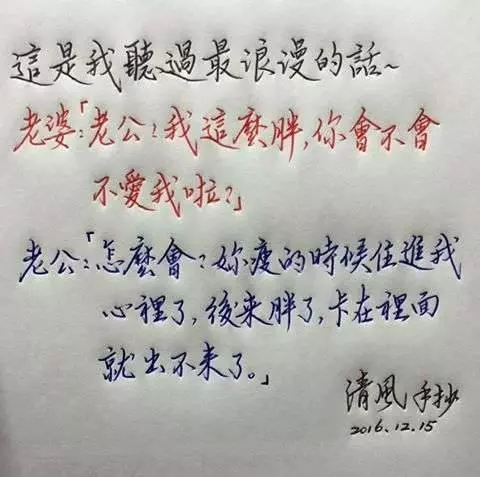 這是我聽過最浪漫的話~
老婆:「老公!我這麼胖,你會不會
不愛我啦?」
老公:「怎麼會?妳瘦的時候住進我
心裡了,後来胖了,卡在裡面
就出不来了。」
清風手抄
2016.12.15